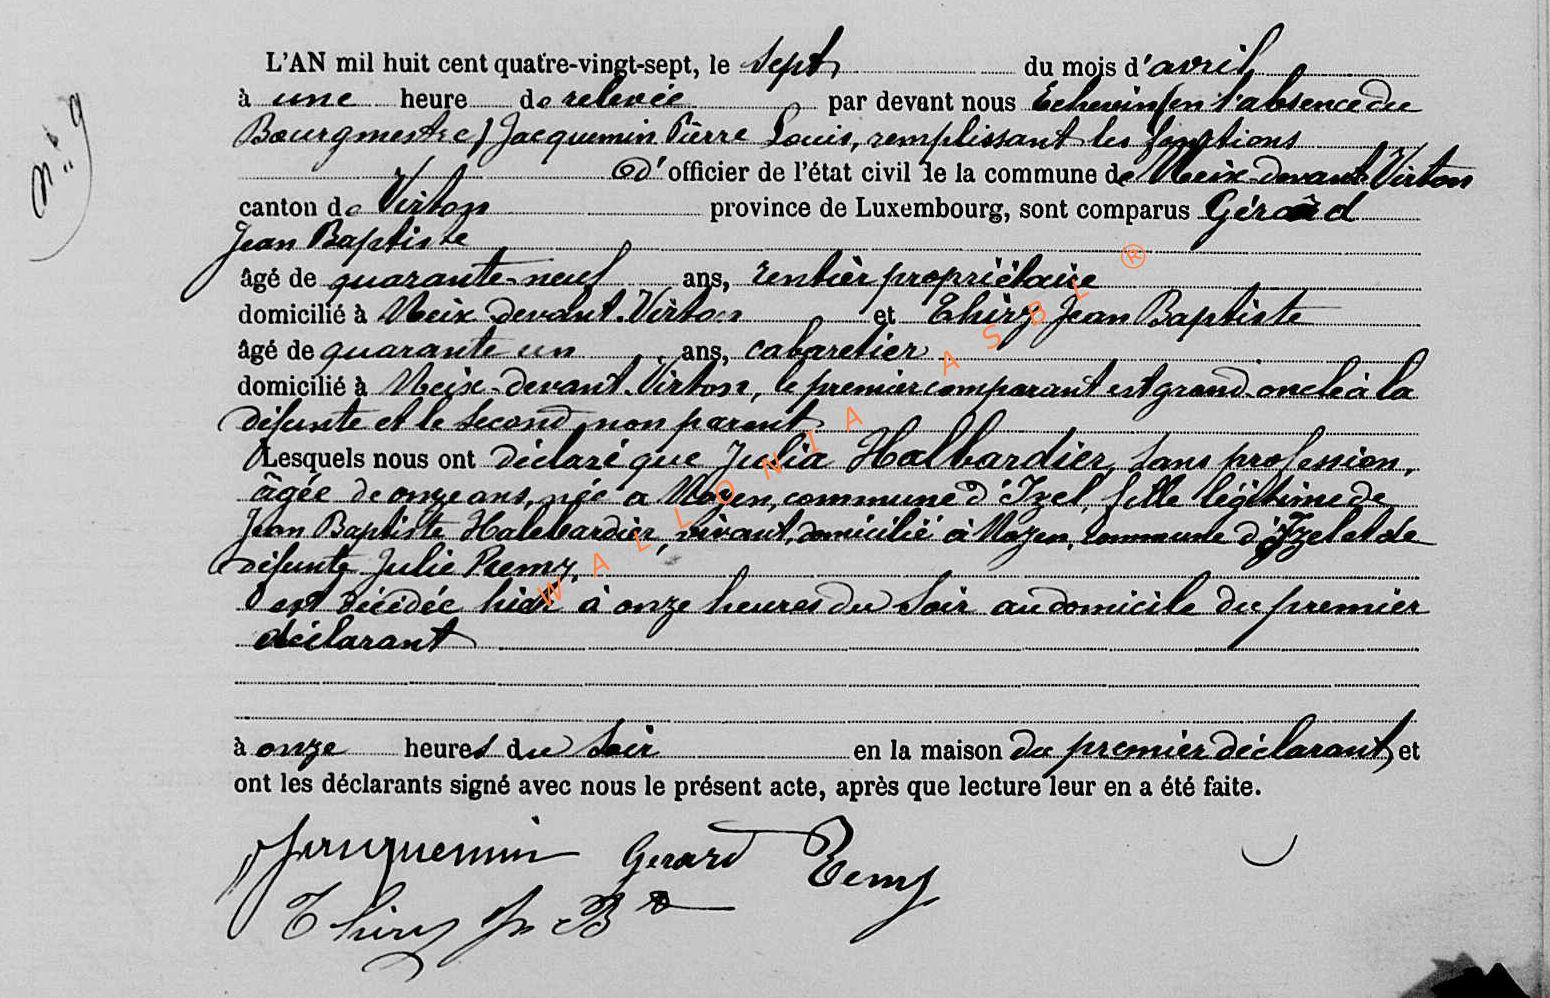 N° 9
L'AN mil huit cent quatre-vingt-sept, le sept du mois d'avril
à une heure de relevée par devant nous Echevin (en l'absence du
Bourgmestre) Jacquemin Pierre Louis, remplissant les fonctions
d'officier de l'état civil de la commune de Meix-devant-Virton
canton de Virton province de Luxembourg, sont comparus Gérard
Jean Baptiste
âgé de quarante-neuf ans, rentier propriétaire
domicilié à Meix-devant-Virton et Thiry Jean Baptiste
âgé de quarante un ans, cabaretier
domicilié à Meix-devant-Virton, le premier comparant est grand-oncle à la
défunte et le second non parent
Lesquels nous ont déclaré que Julia Halbardier, sans profession,
âgée de onze ans, née à Moyen, commune d'Izel, fille légitime de
Jean Baptiste Halebardier, vivant, domicilié à Moyen, commune d'Izel et de
défunte Julie Remy,
est décédée hier à onze heures du soir au domicile du premier
déclarant
à onze heures du soir en la maison du premier déclarant, et
ont les déclarants signé avec nous le présent acte, après que lecture leur en a été faite.
Jacquemin Gerard Remy
Thiry Jn Bte
WALLONIA ASBL ®